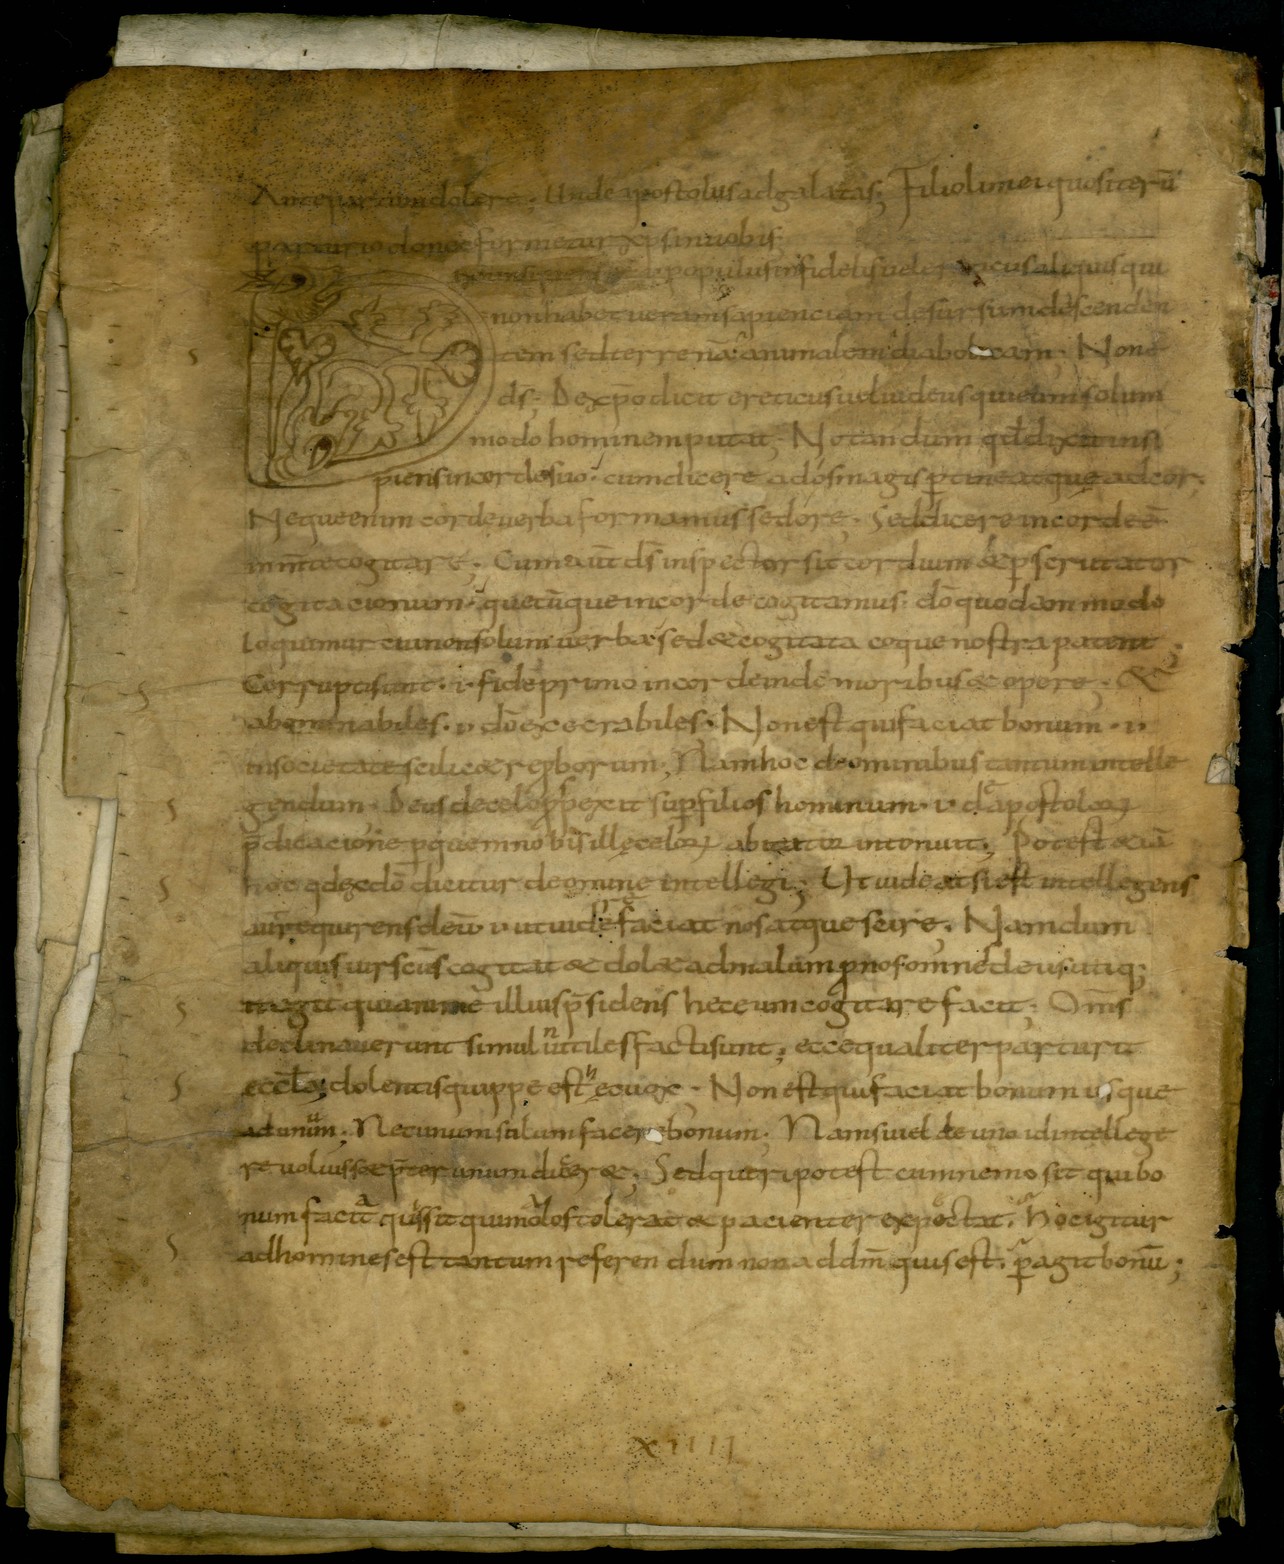 Ante parturi dolere; Unde apostolus ad galatas; Filioli mei quos iterū
parturio donec formetur xp̄s in uobis;
populus infidelis uel ereticus aliquis qui
non habet ueram sapienciam desursum descenden
tem sed terrenā & animalem diabolicam; Non ē
ds̄; De xp̄o dicit ereticus uel iudeus qui eum solum
modo hominem putat; Notandum qđ dixit insi
piens in corde suo; cum dicere ad os magis ꝑtineat que ad cor;
Neque enim corde uerba formamus sed ore; Sed dicere in corde ē
in m̄te cogitare; Cum aūt ds̄ inspector sit cordium & ꝑscrutator
cogitacionum; quecūque in corde cogitamus; dō quodam modo
loquimur cui non solum uerba sed & cogitata coque nostra patent;
Corrupti sunt · i· fide primo in cor deinde moribus & opere; &
abominabiles · i· dō execrabiles; Non est qui faciat bonum · i·
in societate scilic& reꝓborum; Nam hoc de omnibus tantum intelle
gendum; Deus de celo ꝓspexit suꝑ filios hominum · i· de apostoloꝝ
p̄dicacione ꝑ quem nobis ille celoꝝ intonuit; Potest &iā
hoc qđ dicitur de omne intellegi; Ut uideat si est intellegens
aut requirens deū · i· ut uidere faciat nos atque scire; Nam dum
aliquis uir sc̄s cogitat & dol& ad malum deus utiq;
id agit qui anime illius p̄sidens hec eum cogitare facit; Om̄s
declinauerunt simul inutiles facti sunt; ecce qualiter parturit
eccła; dolentis quippe est uox; Non est qui faciat bonum usque
ad unum; Nec unum solum facere bonum; Nam siuel de uno id intellege
re uoluiss& p̄ter unum dicer&; Sed queri potest cum nemo sit qui bo
num faciat quis sit qui malos tolerat & pacienter expectat; Hoc igitur
ad homines est tantum referendum non ad dm̄ qui est; ꝑagit bonū;
xiiii